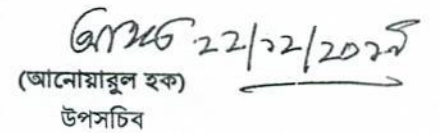 ২২/১২/২০১৯
(আনোয়ারুল হক)
উপসচিব